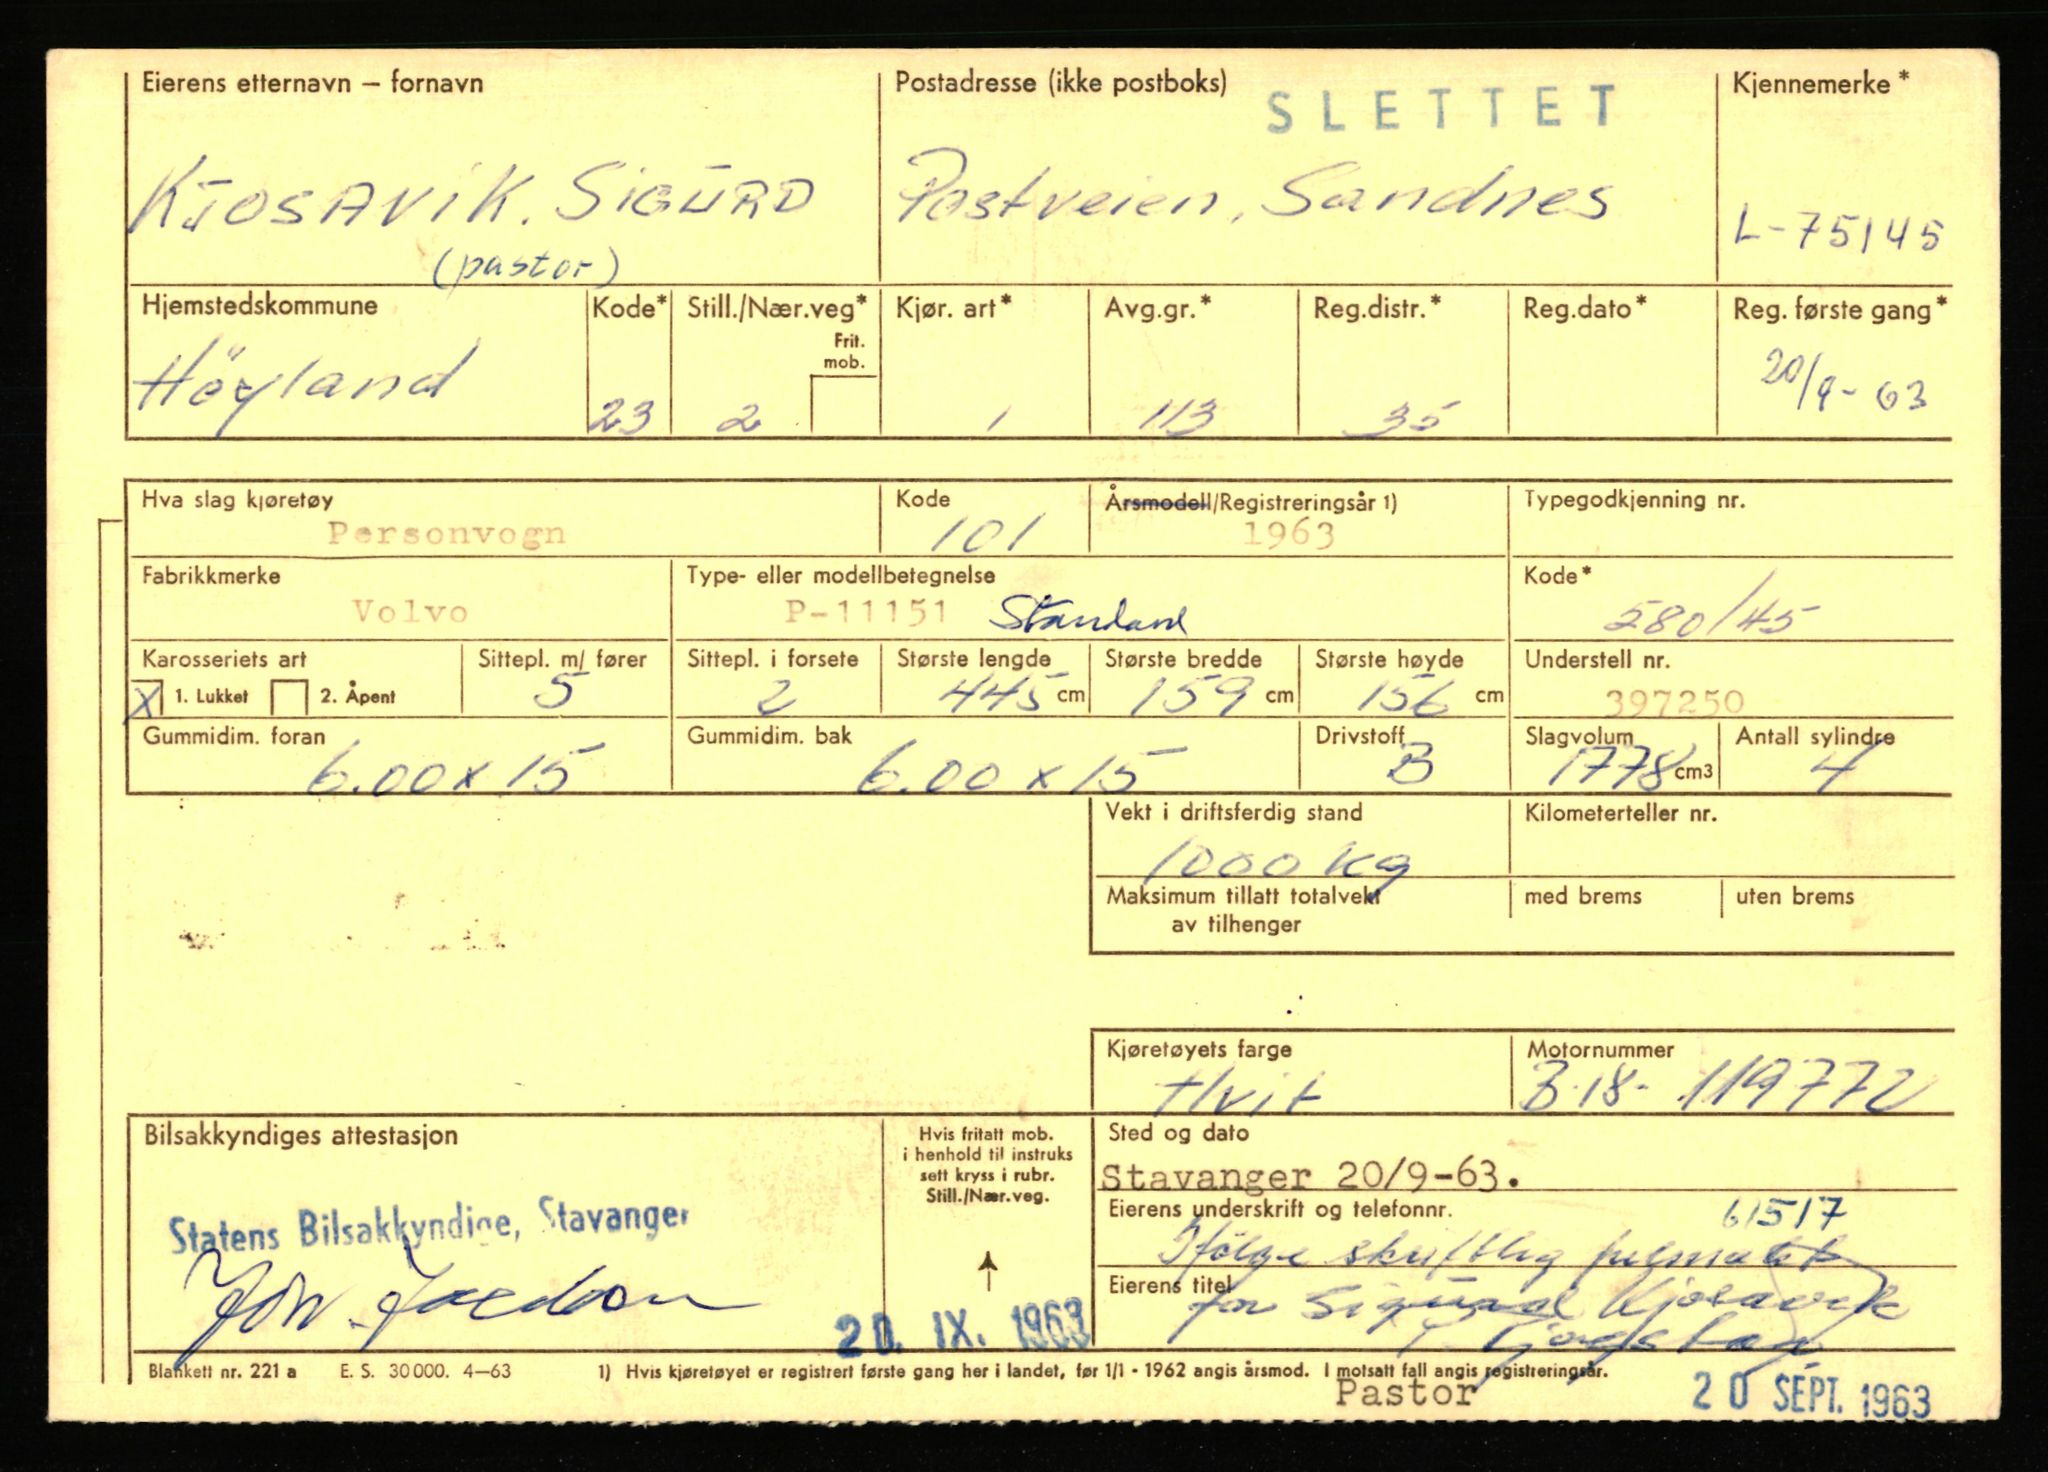 Eierens etternavn – fornavn
Postadresse (ikke postboks)
SLETTET
Kjennemerke*
KJOSAVIK. SIGURD
(pastor)
Postveien, Sandnes
L-75145
Hjemstedskommune
Kode*
Still./Nær.veg*
Frit. mob.
Kjør. art*
Avg.gr.*
Reg.distr.*
Reg.dato*
Reg. første gang*
Höyland
23
2
1
113
35
20/9-63
Hva slag kjøretøy
Kode
Årsmodell/Registreringsår 1)
Typegodkjenning nr.
Personvogn
101
1963
Fabrikkmerke
Type- eller modellbetegnelse
Kode*
Volvo
P-11151 Standard
580/45
Karosseriets art
Sittepl. m/ fører
Sittepl. i forsete
Største lengde
Største bredde
Største høyde
Understell nr.
X 1. Lukket
2. Åpent
5
2
445 cm
159 cm
156 cm
397250
Gummidim. foran
Gummidim. bak
Drivstoff
Slagvolum
Antall sylindre
6.00 x 15
6.00 x 15
B
1778 cm3
4
Vekt i driftsferdig stand
Kilometerteller nr.
1000 kg
Maksimum tillatt totalvekt
av tilhenger
med brems
uten brems
Kjøretøyets farge
Motornummer
Hvit
B-18- 119772
Bilsakkyndiges attestasjon
Hvis fritatt mob.
i henhold til instruks
sett kryss i rubr.
Still./Nær.veg.
Sted og dato
Stavanger 20/9-63.
Eierens underskrift og telefonnr.
61517
Statens Bilsakkyndige, Stavanger
Ifølge skriftlig fulmakt
Eierens titel
for Sigurd Kjosavik
20. IX. 1963
Blankett nr. 221 a
E. S. 30 000. 4–63
1) Hvis kjøretøyet er registrert første gang her i landet, før 1/1 - 1962 angis årsmod. I motsatt fall angis registreringsår.
Pastor
20 SEPT. 1963